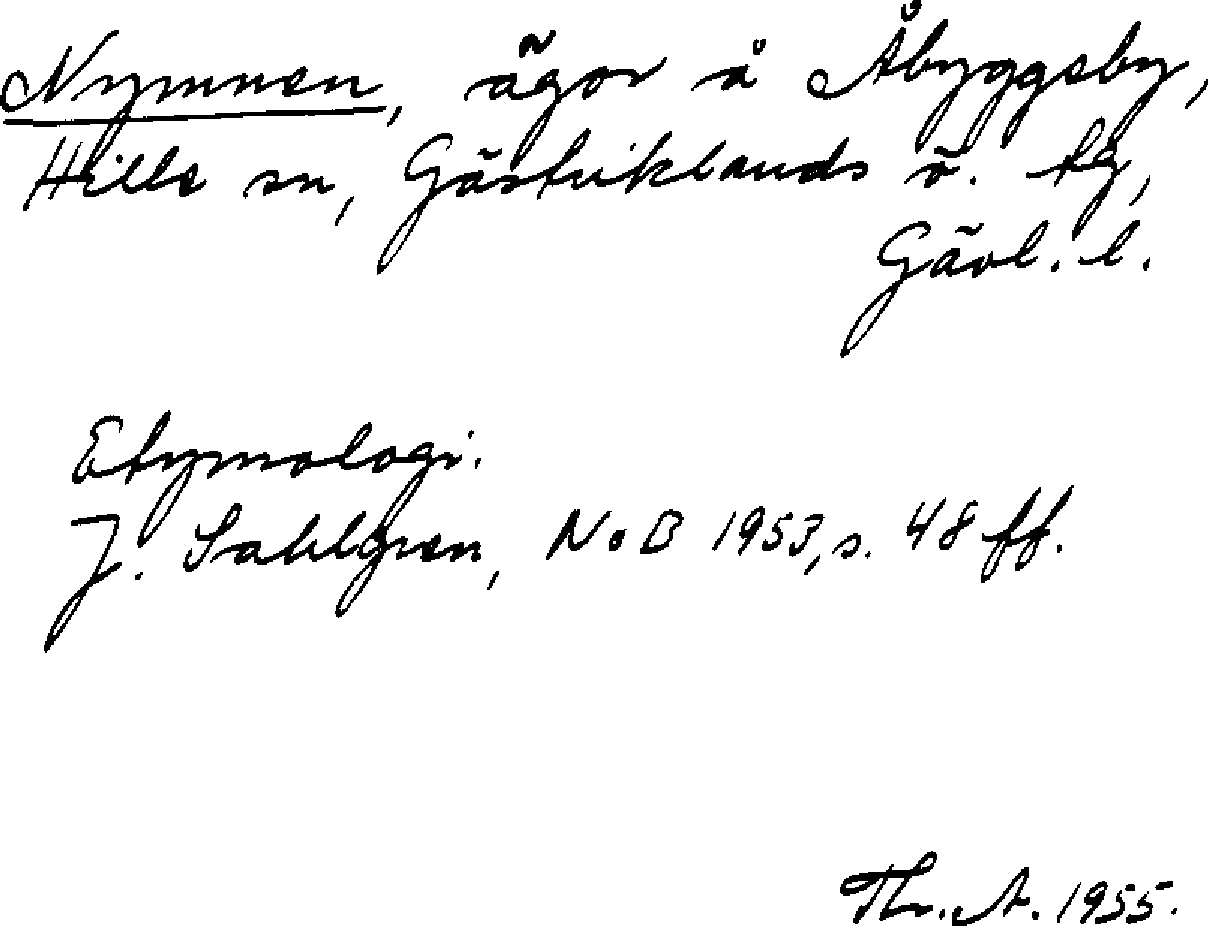 Nymnen, ägor å Åbyggeby,
Hille sn, Gästriklands ö. tg,
Gävl. l.
Etymologi.
J. Sahlgren, NoB 1953, s. 48 ff.
Th. A. 1955.